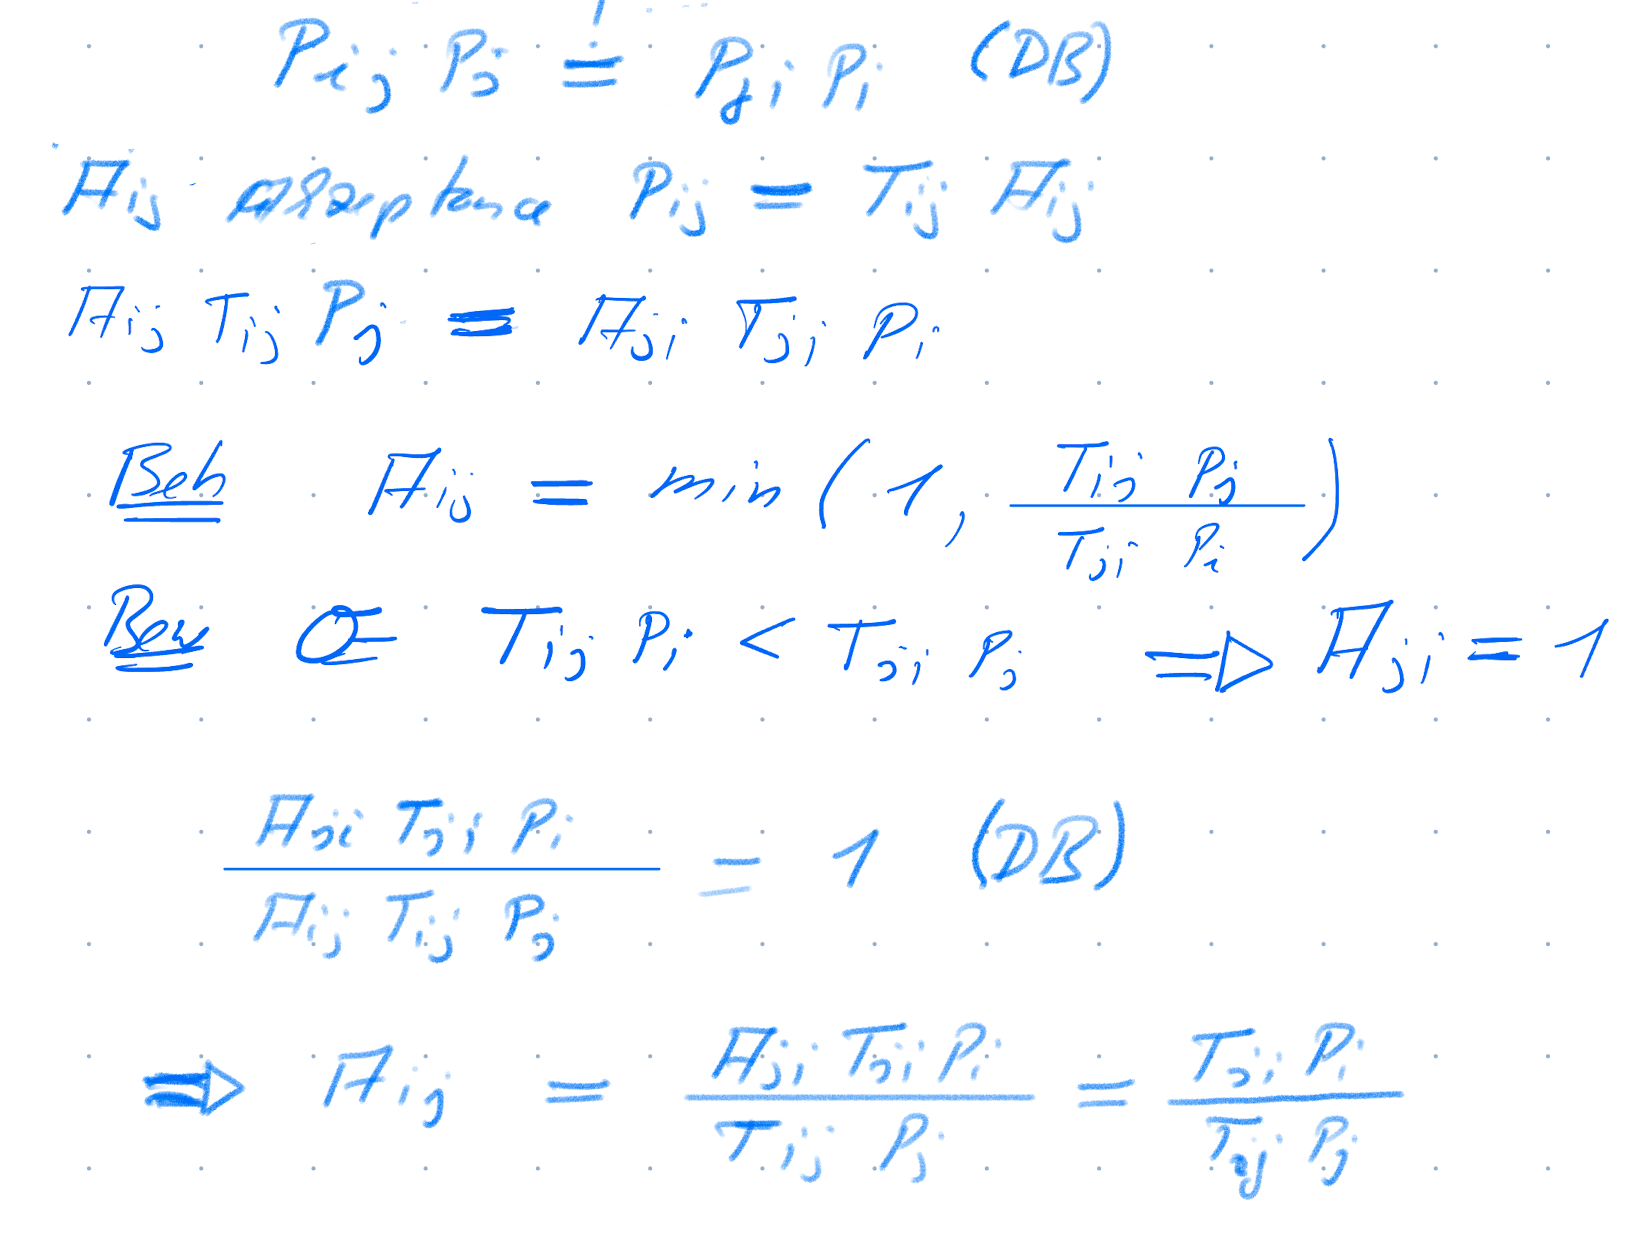 P_ij P_j = P_ji P_i (DB)
A_ij acceptance P_ij = T_ij A_ij
A_ij T_ij P_j = A_ji T_ji P_i
Beh A_ij = min (1, (T_ij P_j)/(T_ji P_i))
Bew T_ij P_i < T_ji P_j ⇒ A_ji = 1
(A_ji T_ji P_i)/(A_ij T_ij P_j) = 1 (DB)
⇒ A_ij = (A_ji T_ji P_i)/(T_ij P_j) = (T_ji P_i)/(T_ij P_j)